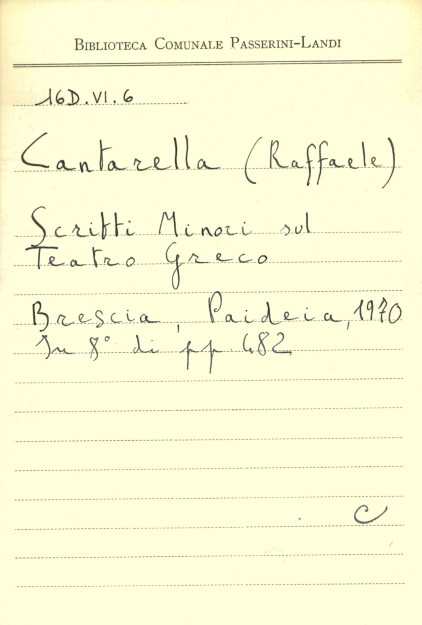 Biblioteca Comunale Passerini-Landi
16D.VI.6
Cantarella (Raffaele)
Scritti Minori sul
Teatro Greco
Brescia, Paideia, 1970
In 8° di pp 482
C